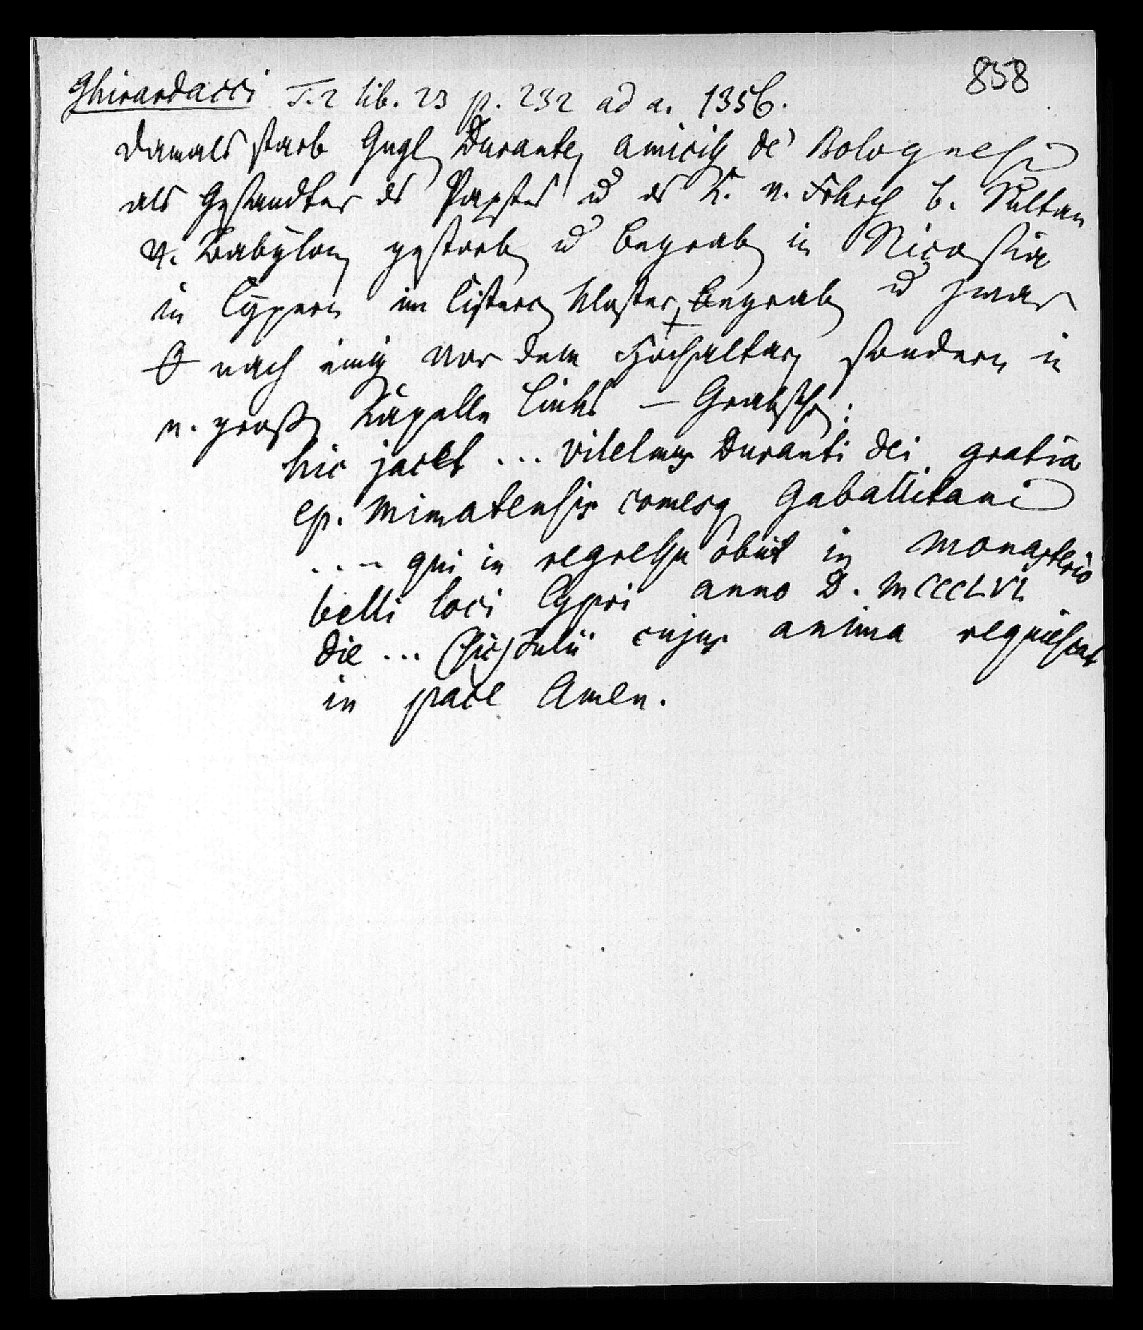 858
Ghirardacci T. 2 lib. 23 p. 232 ad a. 1356.
damals starb Gugl Durante, amiciss de' Bolognesi
als Gesandter des Papstes u d K. v. Frkrch b. Sultan
v. Babylon gestorben u begraben in Nicosia
in Cypern im Cisterc Kloster, begraben u zwar
nach einig vor dem Hochaltar, sondern in
großen Kapelle links – Grabsch:
hic jacet ... vilelmus Duranti dei gratia
ep. Mimatensis comesq Gaballitani
.... qui in regressu obiit in monasterio
belli loci Cypri anno D. MCCCLVI
die ... (sic) Julii cujus anima requiescat
in pace Amen.